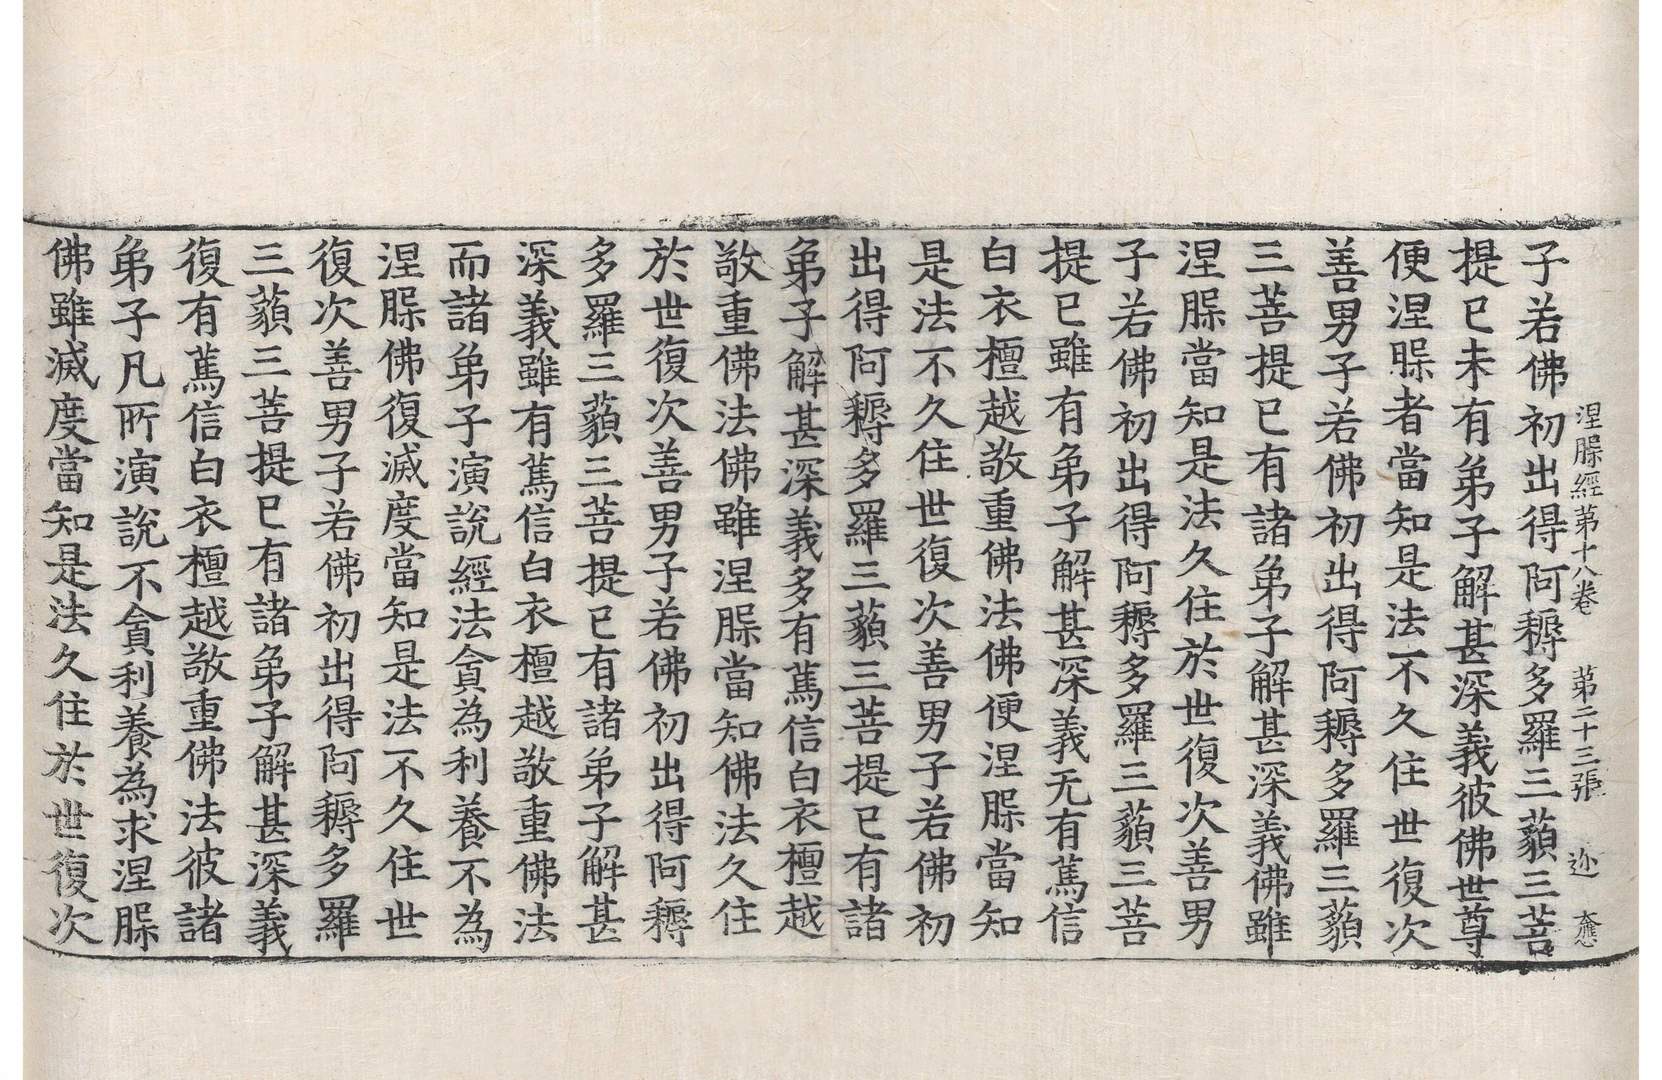 涅槃經第十八卷　第二十三張　迩
子若佛初出得阿耨多羅三藐三菩
提已未有弟子解甚深義彼佛世尊
便涅槃者當知是法不久住世復次
善男子若佛初出得阿耨多羅三藐
三菩提已有諸弟子解甚深義佛雖
涅槃當知是法久住於世復次善男
子若佛初出得阿耨多羅三藐三菩
提已雖有弟子解甚深義无有篤信
白衣檀越敬重佛法佛便涅槃當知
是法不久住世復次善男子若佛初
出得阿耨多羅三藐三菩提已有諸
弟子解甚深義多有篤信白衣檀越
敬重佛法佛雖涅槃當知佛法久住
於世復次善男子若佛初出得阿耨
多羅三藐三菩提已有諸弟子解甚
深義雖有篤信白衣檀越敬重佛法
而諸弟子演說經法貪為利養不為
涅槃佛復滅度當知是法不久住世
復次善男子若佛初出得阿耨多羅
三藐三菩提已有諸弟子解甚深義
復有篤信白衣檀越敬重佛法彼諸
弟子凡所演說不貪利養為求涅槃
佛雖滅度當知是法久住於世復次